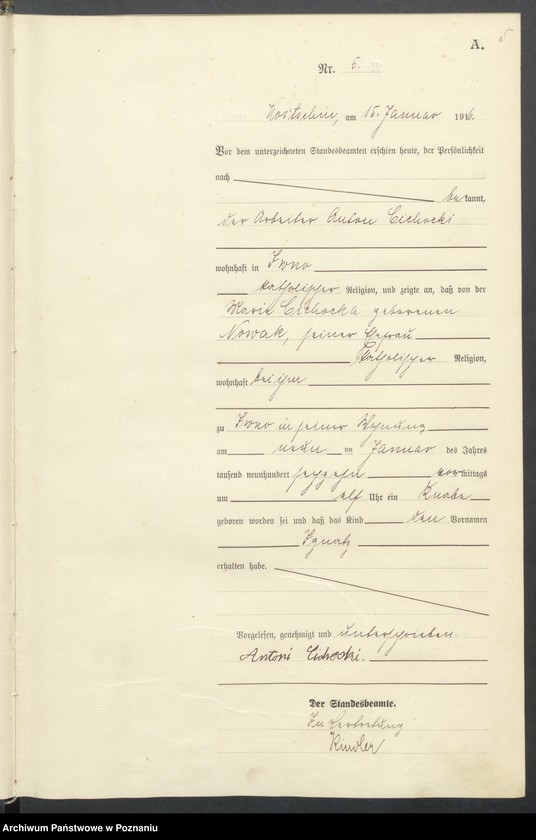 A.
5
Nr. 5.
Kostschin, am 15. Januar 1916.
Vor dem unterzeichneten Standesbeamten erschien heute, der Persönlichkeit
nach
bekannt,
der Arbeiter Anton Cichocki
wohnhaft in Iwno
katholischer Religion, und zeigte an, daß von der
Marie Cichocka geborenen
Nowak, seiner Ehefrau
katholischer Religion,
wohnhaft bei ihm
zu Iwno in seiner Wohnung
am neun ten Januar des Jahres
tausend neunhundert sechzehn vormittags
um elf Uhr ein Knabe
geboren worden sei und daß das Kind den Vornamen
Ignatz
erhalten habe.
Vorgelesen, genehmigt und unterschrieben.
Antoni Cichocki.
Der Standesbeamte.
In Vertretung
Kindler
Archiwum Państwowe w Poznaniu